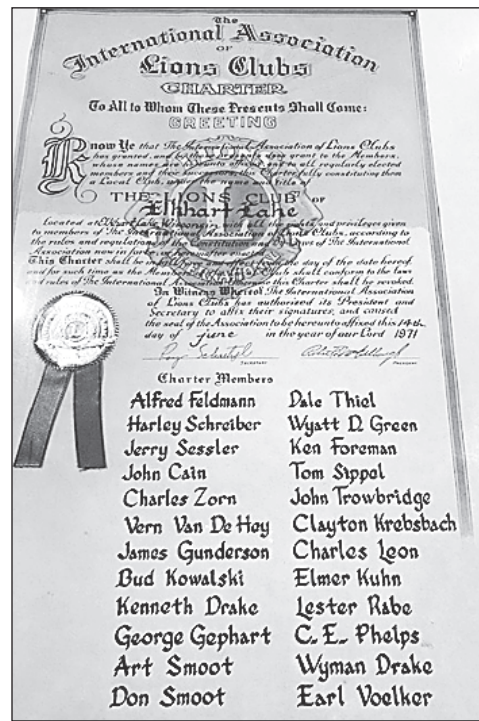 The
International Association
OF
Lions Clubs
CHARTER
To All to Whom These Presents Shall Come:
GREETING
Know Ye that The International Association of Lions Clubs
has granted, and by these presents does grant to the Members,
whose names are hereunto affixed, and to all regularly elected
members and their successors, this Charter, fully constituting them
a Local Club, under the name and title of
THE LIONS CLUB OF
Elkhart Lake
Located at Elkhart Lake, Wisconsin with all the rights and privileges given
to members of The International Association of Lions Clubs, according to
the rules and regulations of the Constitution and of The International
Association now in force, or hereafter enacted.
This Charter shall be in full force and effect from the day of the date hereof,
and for such time as the Members of said Club shall conform to the laws
and rules of The International Association, otherwise this Charter shall be revoked.
In Witness Whereof, The International Association
of Lions Clubs has authorized its President and
Secretary to affix their signatures, and caused
the seal of the Association to be hereunto affixed this 14th
day of june in the year of our Lord 1971
SECRETARY PRESIDENT
Charter Members
Alfred Feldmann Dale Thiel
Harley Schreiber Wyatt D. Green
Jerry Sessler Ken Foreman
John Cain Tom Sippel
Charles Zorn John Trowbridge
Vern Van De Hey Clayton Krebsbach
James Gunderson Charles Leon
Bud Kowalski Elmer Kuhn
Kenneth Drake Lester Rabe
George Gephart C. E. Phelps
Art Smoot Wyman Drake
Don Smoot Earl Voelker